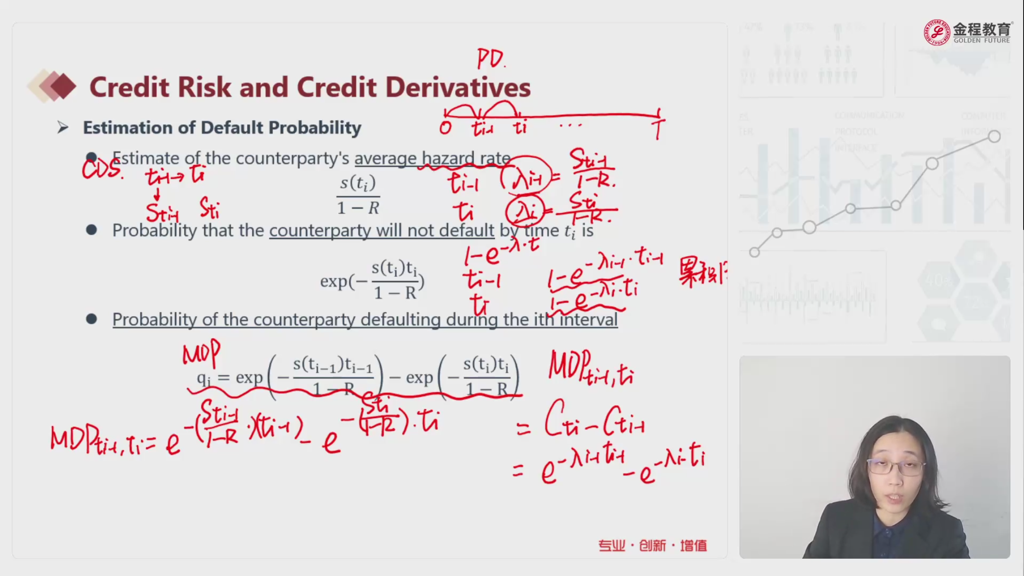 金程教育
GOLDEN FUTURE
PD.
Credit Risk and Credit Derivatives
Estimation of Default Probability
0 ti-1 ti ... T
Estimate of the counterparty's average hazard rate
CDS. ti-1 → ti
Sti-1 Sti
s(ti) / 1 − R
ti-1 λi-1 = Sti-1 / 1-R.
ti λi = Sti / 1-R.
Probability that the counterparty will not default by time ti is
1-e^-λ·t
exp(− s(ti)ti / 1 − R)
ti-1 1-e^-λi-1·ti-1
ti 1-e^-λi·ti
累积
Probability of the counterparty defaulting during the ith interval
MDP
qi = exp(− s(ti−1)ti−1 / 1 − R) − exp(− s(ti)ti / 1 − R)
MDPti-1,ti
= Cti - Cti-1
= e^-λi-1 ti-1 - e^-λi·ti
MDPti-1,ti = e^-(Sti-1 / 1-R ·)(ti-1) - e^-(Sti / 1-R)·ti
专业·创新·增值